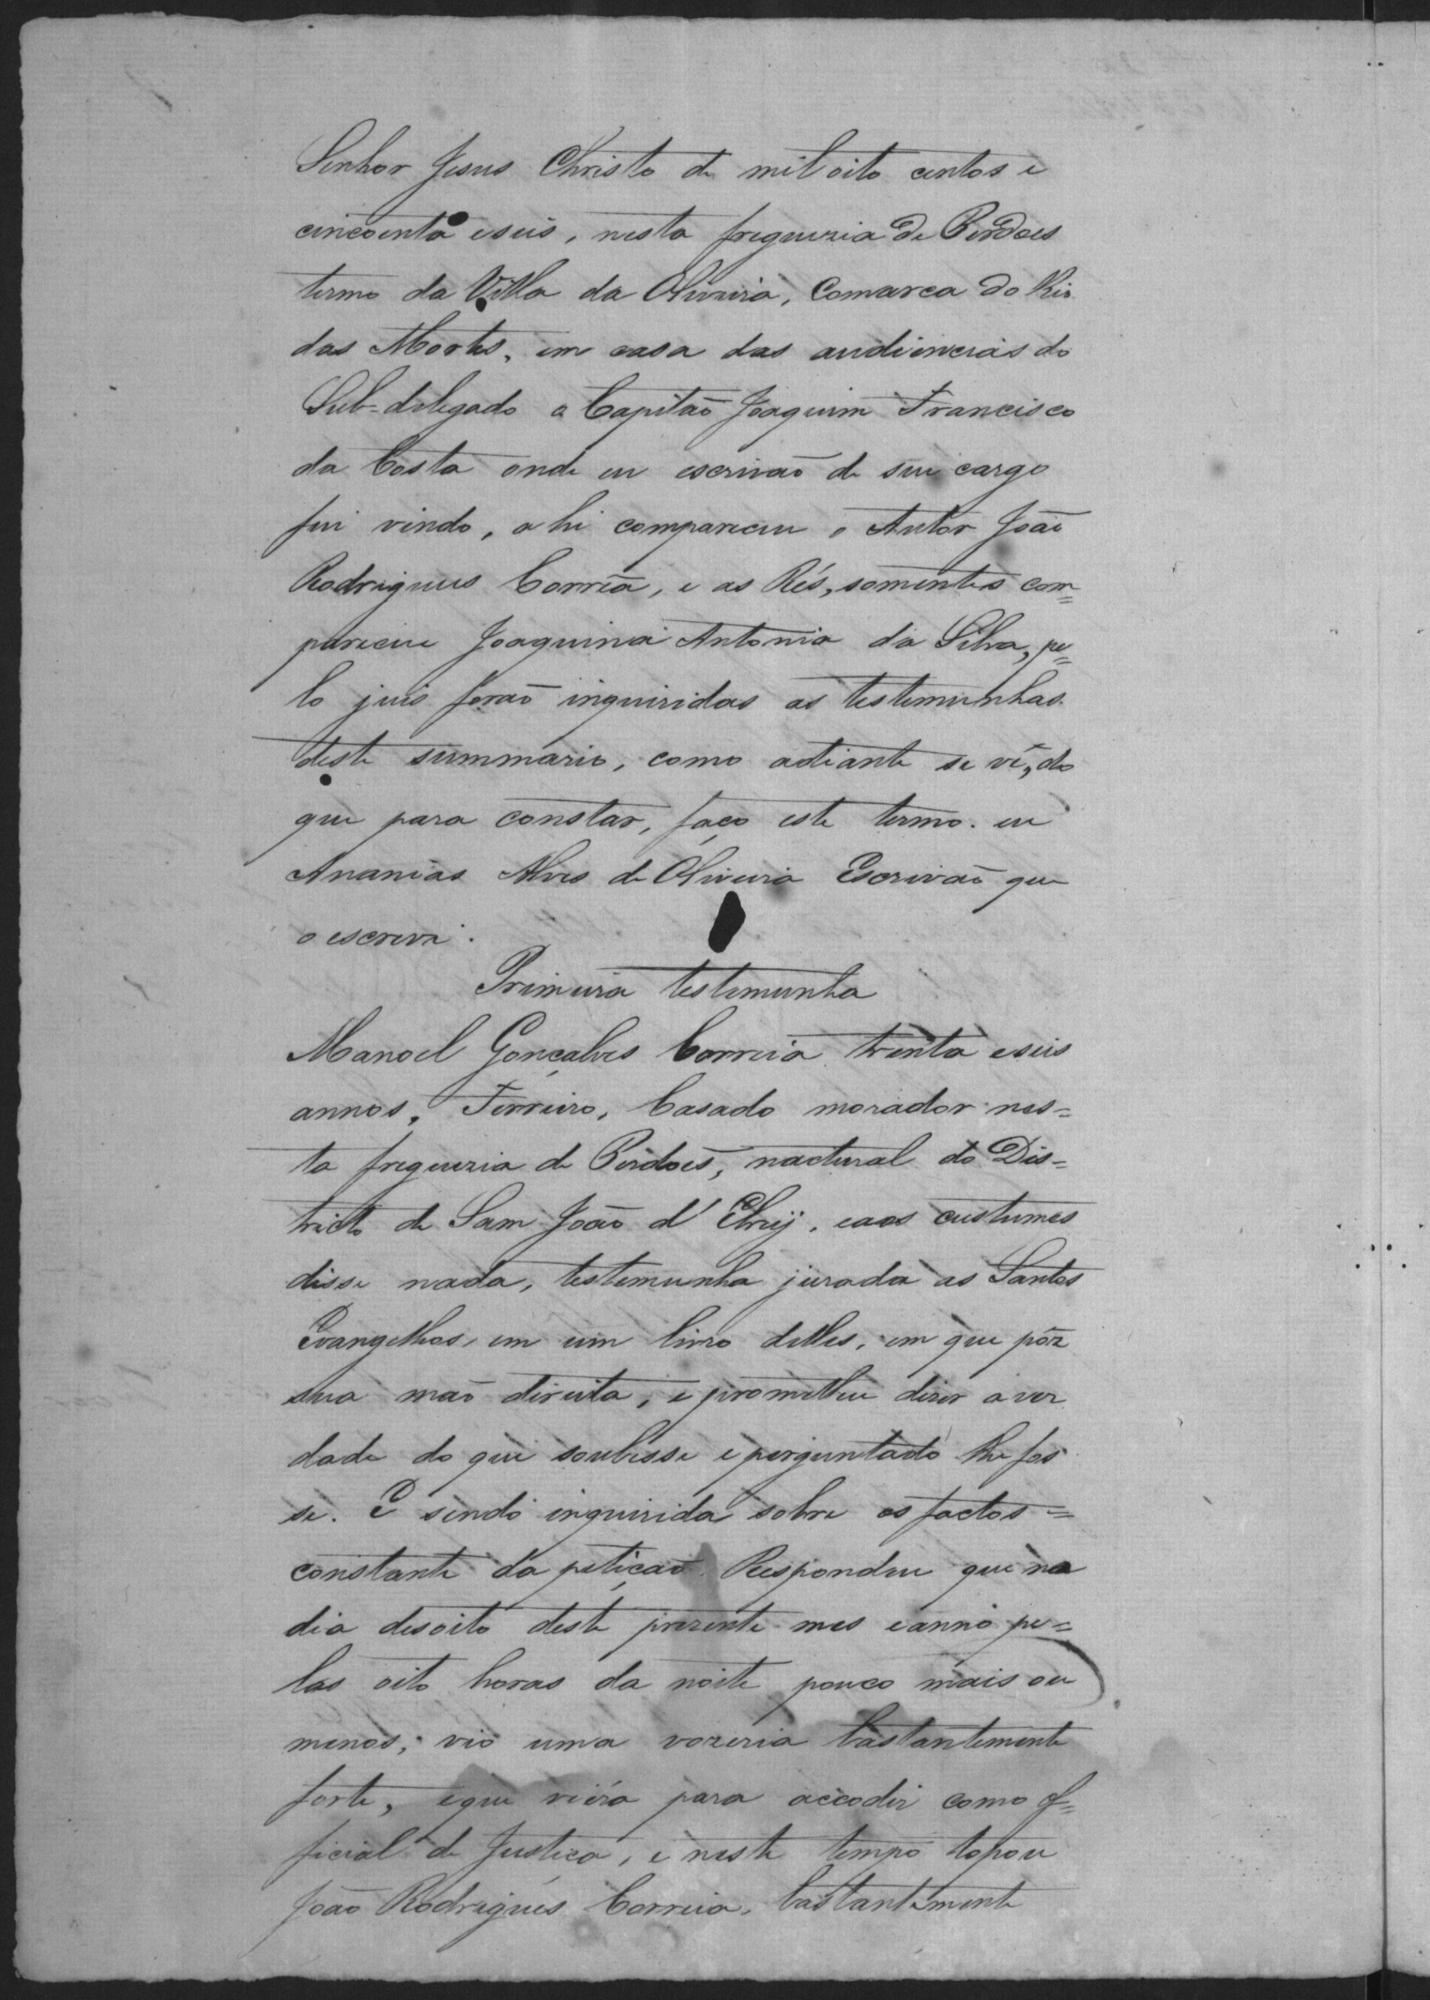 Senhor Jesus Christo de mil oito centos e
cincoenta e seis, nesta freguezia de Perdoes
termo da Villa da Oliveira, Comarca do Rio
das Mortes, em casa das audiencias do
Sub-delegado o Capitão Joaquim Francisco
da Costa onde eu escrivaõ de seu cargo
fui vindo, a hi compareceu o Autor João
Rodrigues Corrêa, e as Rés, somentes com=
pareceu Joaquina Antonia da Silva, pe=
lo juis foraõ inquiridas as testemunhas
deste summario, como adiante se vê, do
que para constar, faço este termo. eu
Ananias Alves de Oliveira Escrivaõ que
o escrevi.
Primeira testemunha
Manoel Gonçalves Correia trinta e seis
annos, Ferreiro, Casado morador nes=
ta freguezia de Perdoẽs, nactural do Dis=
tricto de Sam João d' Elrej, e aos custumes
disse nada, testemunha jurada as Santos
Evangelhos, em um livro delles, em que pôz
sua maõ direita, e prometheu diser a ver
dade do que soubesse e perguntado lhe fos
se. E sendo inquirida sobre os factos =
constante da petiçaõ. Respondeu que no
dia desoito deste prezente mes e anno pe=
las oito horas da noite pouco mais ou
menos, vio uma vozeria bastantemente
forte, e que viéra para accodir como of=
ficial de Justiça, e neste tempo topou
João Rodrigues Correia, bastantemente